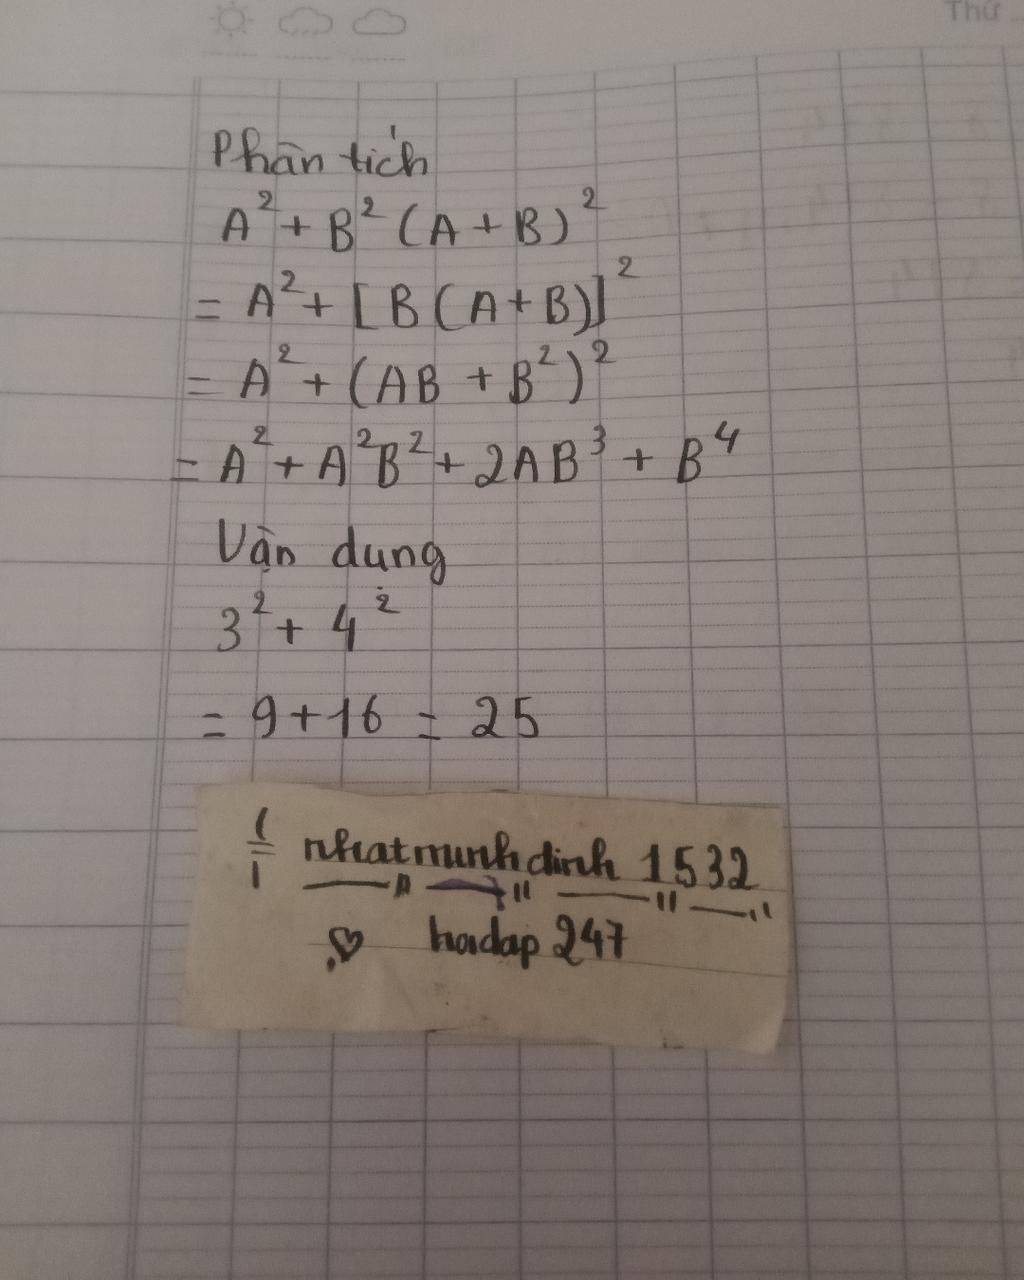 Thứ
Phân tích
A² + B² (A + B)²
= A² + [B (A + B)]²
= A² + (AB + B²)²
= A² + A²B² + 2AB³ + B⁴
Vận dụng
3² + 4²
= 9 + 16 = 25
nhatminhdinh 1532
hoidap 247